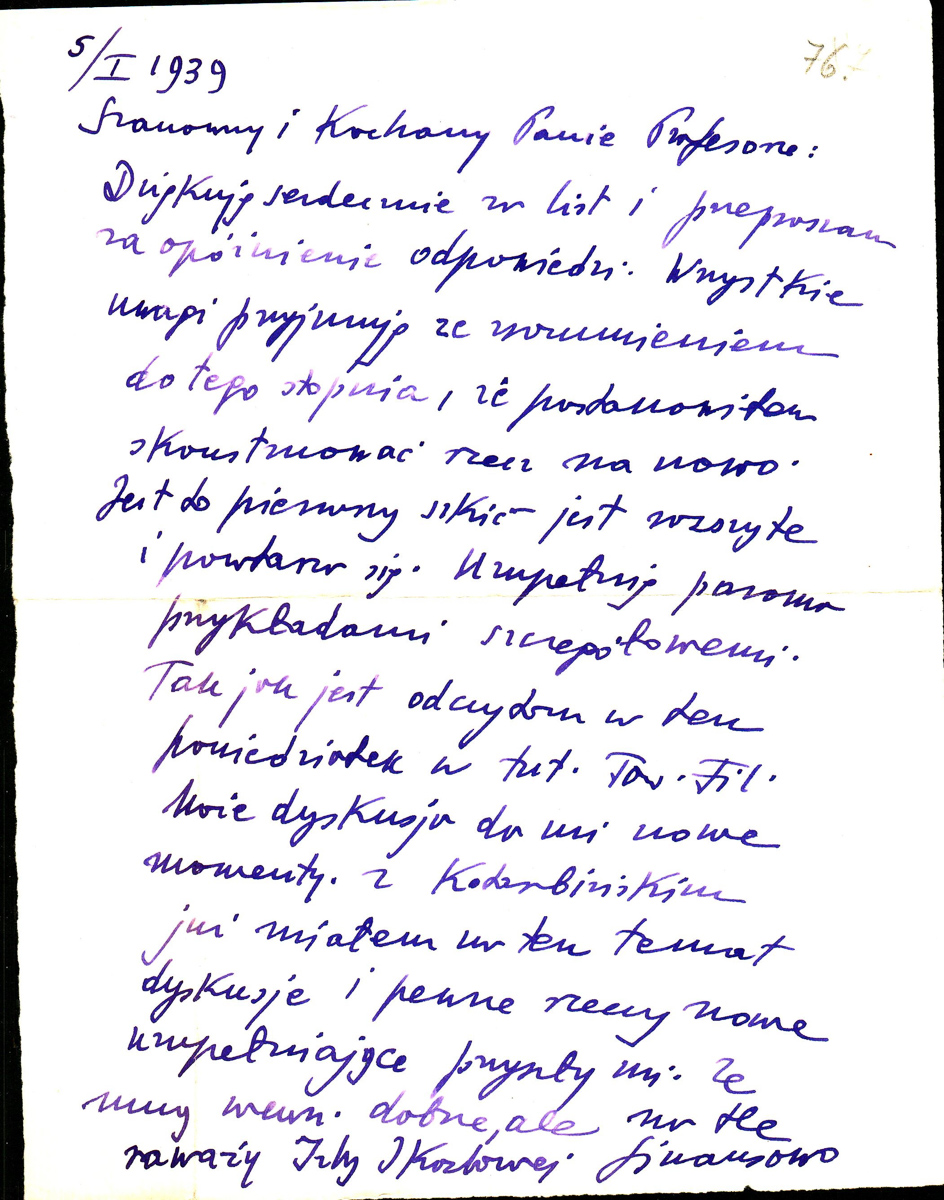 5/I 1939
76.
Szanowny i Kochany Panie Profesorze:
Dziękuję serdecznie za list i przepraszam
za opóźnienie odpowiedzi. Wszystkie
uwagi przyjmuję ze zrozumieniem
do tego stopnia, że postanowiłem
skonstruować rzecz na nowo.
Jest to pierwszy szkic – jest rozszyte
i powtarza się. Uzupełnię paroma
przykładami szczegółowemi.
Tak jak jest odczytam w ten
poniedziałek w tut. Tow. Fil.
Może dyskusja da mi nowe
momenty. Z Kotarbińskim
już miałem na ten temat
dyskusje i pewne rzeczy nowe
uzupełniające przyszły mi. Ze
mną wewn. dobrze, ale na tle
Izby Skarbowej finansowo